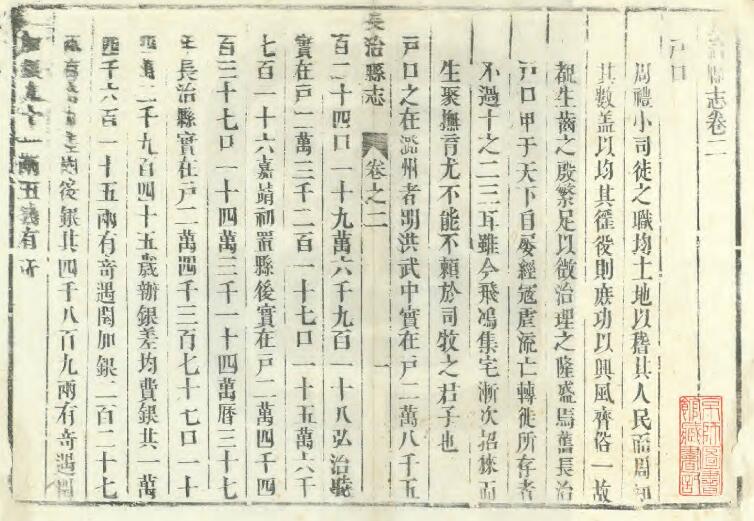 治縣志卷二
戶口
周禮小司徒之職均土地以稽其人民而周知
其數蓋以均其徭役則庶功以興風齊俗一故
觀生齒之殷繁足以徵治理之隆盛焉舊長治
戶口甲于天下自屢經寇虐流亡轉徙所存者
不過十之二三耳雖今飛鴻集宅漸次招徠而
生聚撫育尤不能不賴於司牧之君子也
戶口之在潞州者明洪武中實在戶二萬八千五
長治縣志 卷之二 一
百二十四口一十九萬六千九百一十八弘治
實在戶二萬三千二百一十七口一十五萬六千
七百一十六嘉靖初置縣後實在戶二萬四千四
百三十七口一十四萬三千一十四萬曆三十七
年長治縣實在戶二萬四千三百七十七口一十
四萬二千九百四十五歲辦銀差均費銀共 萬
四千六百一十五兩有奇遇閏加銀二百二十七
役銀共四千八百九兩有奇遇閏
加銀 十一兩五錢有奇
京師圖書館藏書記